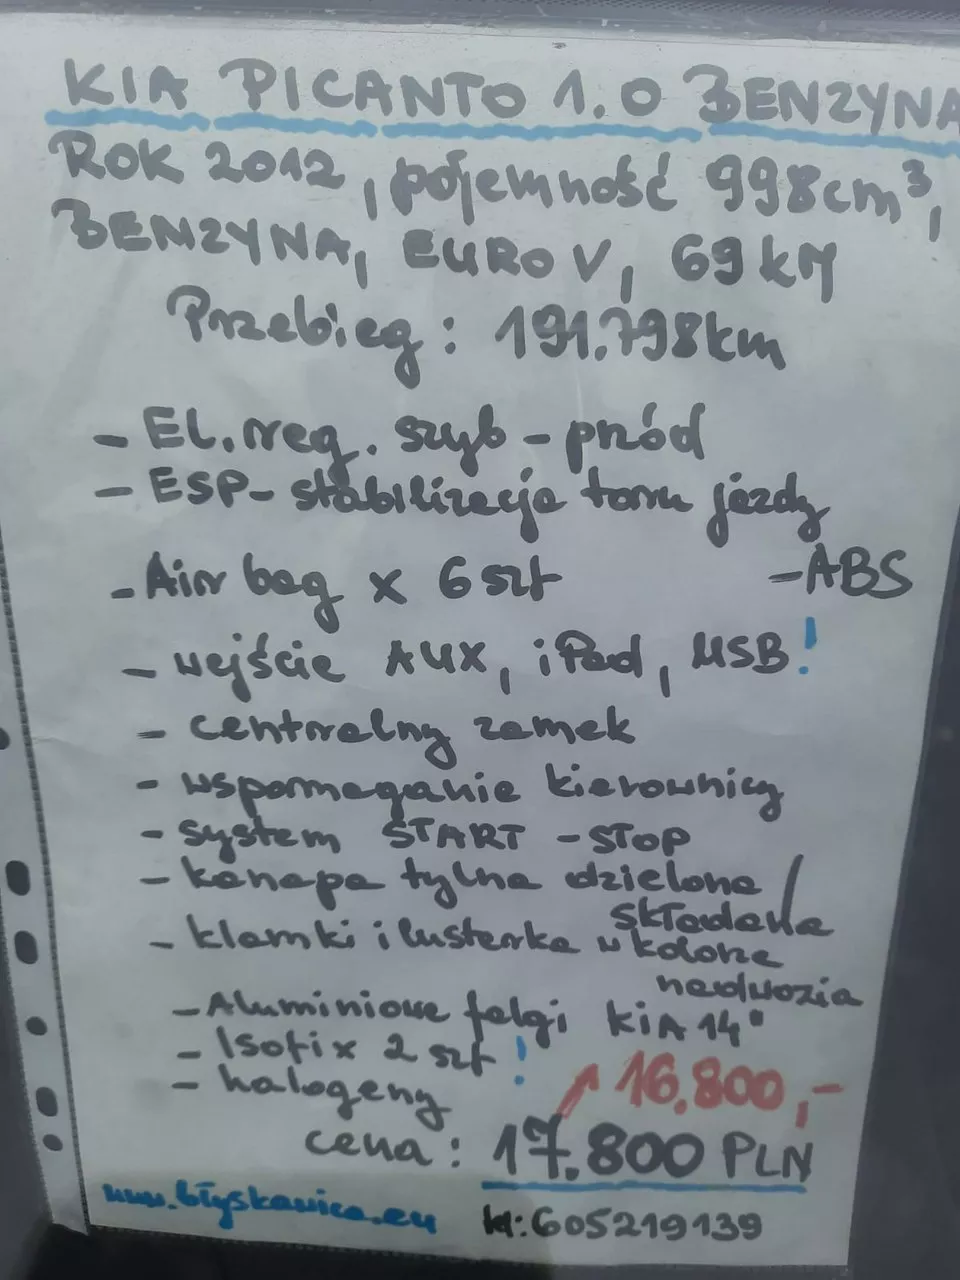 KIA PICANTO 1.0 BENZYNA
ROK 2012, pojemność 998cm³,
BENZYNA, EURO V, 69 kM
Przebieg: 191.798km
- El. reg. szyb - przód
- ESP - stabilizacja toru jazdy
- Air bag x 6 szt - ABS
- wejście AUX, iPod, USB!
- centralny zamek
- wspomaganie kierownicy
- system START - STOP
- kanapa tylna dzielona /
składana
- klamki i lusterka w kolorze
nadwozia
- Aluminiowe felgi KIA 14"
- Isofix 2 szt!
- halogeny
16.800,-
cena: 17.800 PLN
www.błyskawica.eu
tel: 605219139